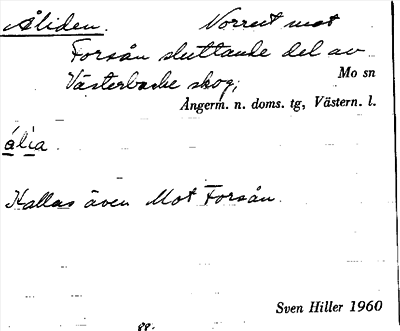 Åliden. Norrut mot
Forsån sluttande del av
Västerbacke skog, Mo sn
Ångerm. n. doms. tg, Västern. l.
ália.
Kallas även Mot Forsån.
Sven Hiller 1960
88.